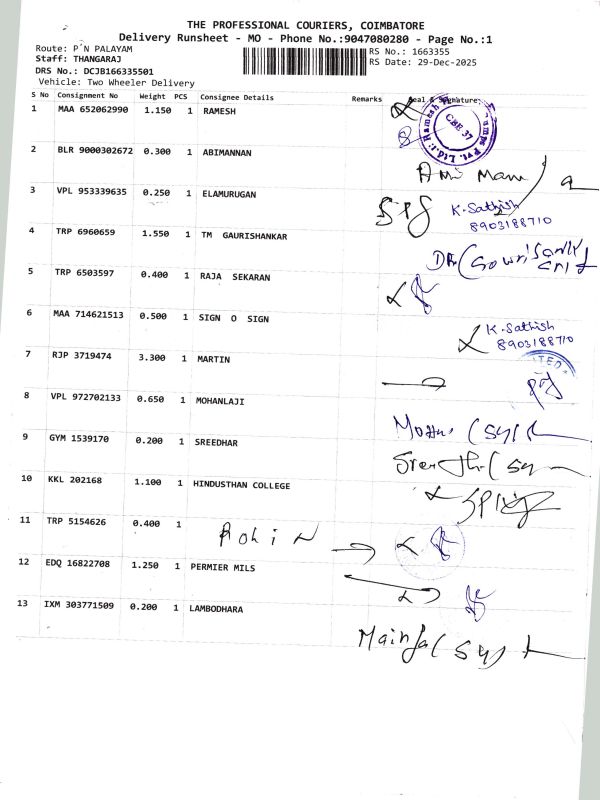 THE PROFESSIONAL COURIERS, COIMBATORE
Delivery Runsheet - MO - Phone No.:9047080280 - Page No.:1
Route: P N PALAYAM
RS No.: 1663355
Staff: THANGARAJ
RS Date: 29-Dec-2025
DRS No.: DCJB166335501
Vehicle: Two Wheeler Delivery
S No Consignment No Weight PCS Consignee Details Remarks Seal & Signature
1 MAA 652062990 1.150 1 RAMESH
CBE 37
2 BLR 9000302672 0.300 1 ABIMANNAN
3 VPL 953339635 0.250 1 ELAMURUGAN
K. Sathish
8903188710
4 TRP 6960659 1.550 1 TM GAURISHANKAR
5 TRP 6503597 0.400 1 RAJA SEKARAN
6 MAA 714621513 0.500 1 SIGN O SIGN
K. Sathish
8903188710
7 RJP 3719474 3.300 1 MARTIN
8 VPL 972702133 0.650 1 MOHANLAJI
9 GYM 1539170 0.200 1 SREEDHAR
10 KKL 202168 1.100 1 HINDUSTHAN COLLEGE
11 TRP 5154626 0.400 1 Rohin
12 EDQ 16822708 1.250 1 PERMIER MILS
13 IXM 303771509 0.200 1 LAMBODHARA